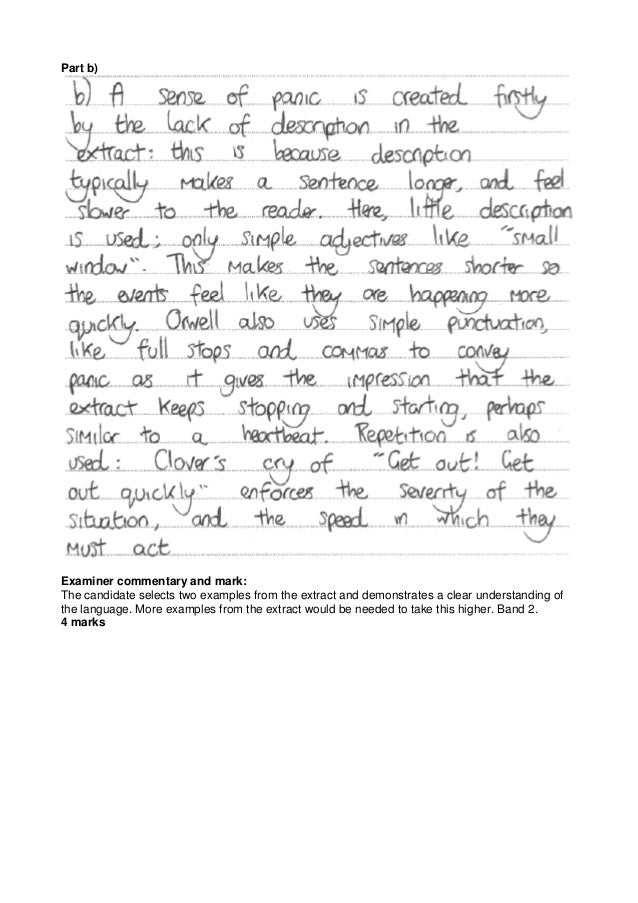 Part b)
b) A sense of panic is created firstly
by the lack of description in the
extract: this is because description
typically makes a sentence longer, and feel
slower to the reader. Here, little description
is used; only simple adjectives like "small
window". This makes the sentences shorter so
the events feel like they are happening more
quickly. Orwell also uses simple punctuation,
like full stops and commas to convey
panic as it gives the impression that the
extract keeps stopping and starting, perhaps
similar to a heartbeat. Repetition is also
used: Clover's cry of "Get out! Get
out quickly" enforces the severity of the
situation, and the speed in which they
must act
Examiner commentary and mark:
The candidate selects two examples from the extract and demonstrates a clear understanding of
the language. More examples from the extract would be needed to take this higher. Band 2.
4 marks